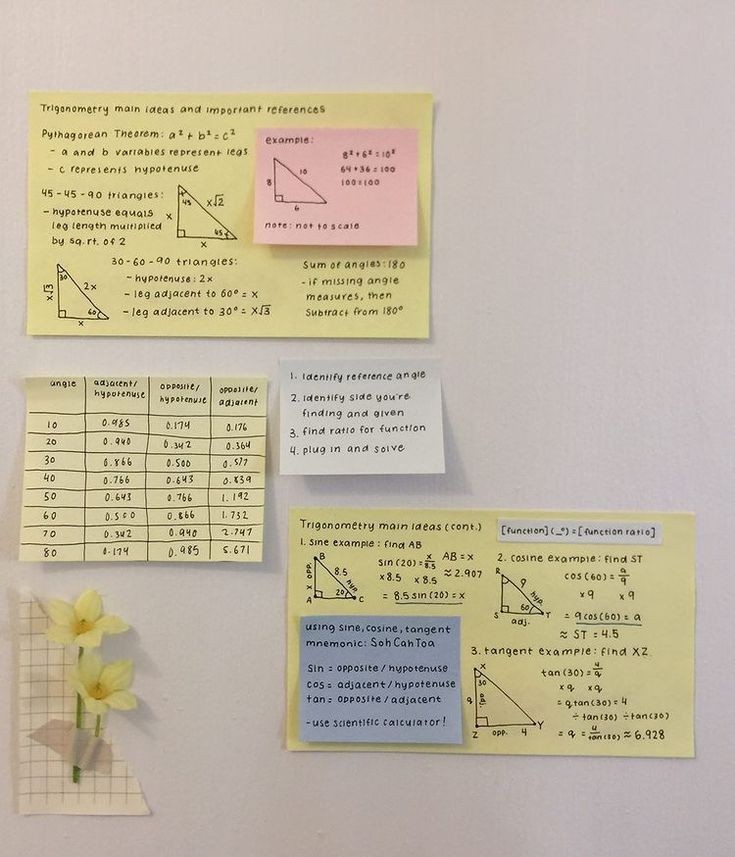 Trigonometry main ideas and important references
Pythagorean Theorem: a² + b² = c²
- a and b variables represent legs
- c represents hypotenuse
45-45-90 triangles:
- hypotenuse equals
leg length multiplied
by sq.rt. of 2
45
x√2
x
45
x
example:
8
10
6
8² + 6² = 10²
64 + 36 = 100
100 = 100
note: not to scale
30-60-90 triangles:
- hypotenuse: 2x
- leg adjacent to 60° = x
- leg adjacent to 30° = x√3
30
x√3
2x
60
x
Sum of angles: 180
- if missing angle
measures, then
subtract from 180°
angle adjacent/hypotenuse opposite/hypotenuse opposite/adjacent
10 0.985 0.174 0.176
20 0.940 0.342 0.364
30 0.866 0.500 0.577
40 0.766 0.643 0.839
50 0.643 0.766 1.192
60 0.500 0.866 1.732
70 0.342 0.940 2.747
80 0.174 0.985 5.671
1. Identify reference angle
2. Identify side you're
finding and given
3. find ratio for function
4. plug in and solve
Trigonometry main ideas (cont.)
[function](_°) = [function ratio]
1. sine example: find AB
B
x opp.
8.5
hyp.
A
20
C
sin(20) = x/8.5
×8.5 ×8.5
= 8.5 sin(20) = x
AB = x
≈ 2.907
2. cosine example: find ST
R
9
hyp.
60
S
T
adj.
cos(60) = a/9
×9 ×9
= 9cos(60) = a
≈ ST = 4.5
using sine, cosine, tangent
mnemonic: SohCahToa
sin = opposite/hypotenuse
cos = adjacent/hypotenuse
tan = opposite/adjacent
- use scientific calculator!
3. tangent example: find XZ
X
30
q
adj.
Z
opp.
4
Y
tan(30) = 4/q
×q ×q
= q tan(30) = 4
÷tan(30) ÷tan(30)
= q = 4/tan(30) ≈ 6.928